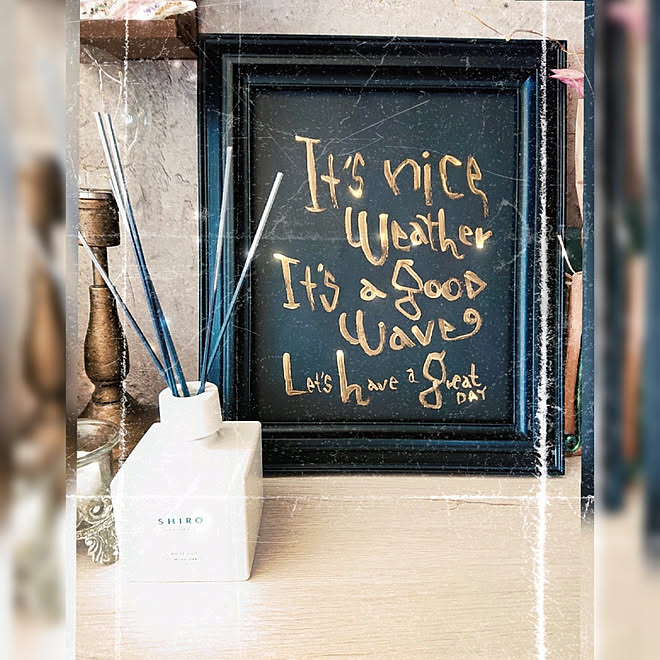 It's nice
Weather
It's a good
Wave
Let's have a great
DAY
SHIRO